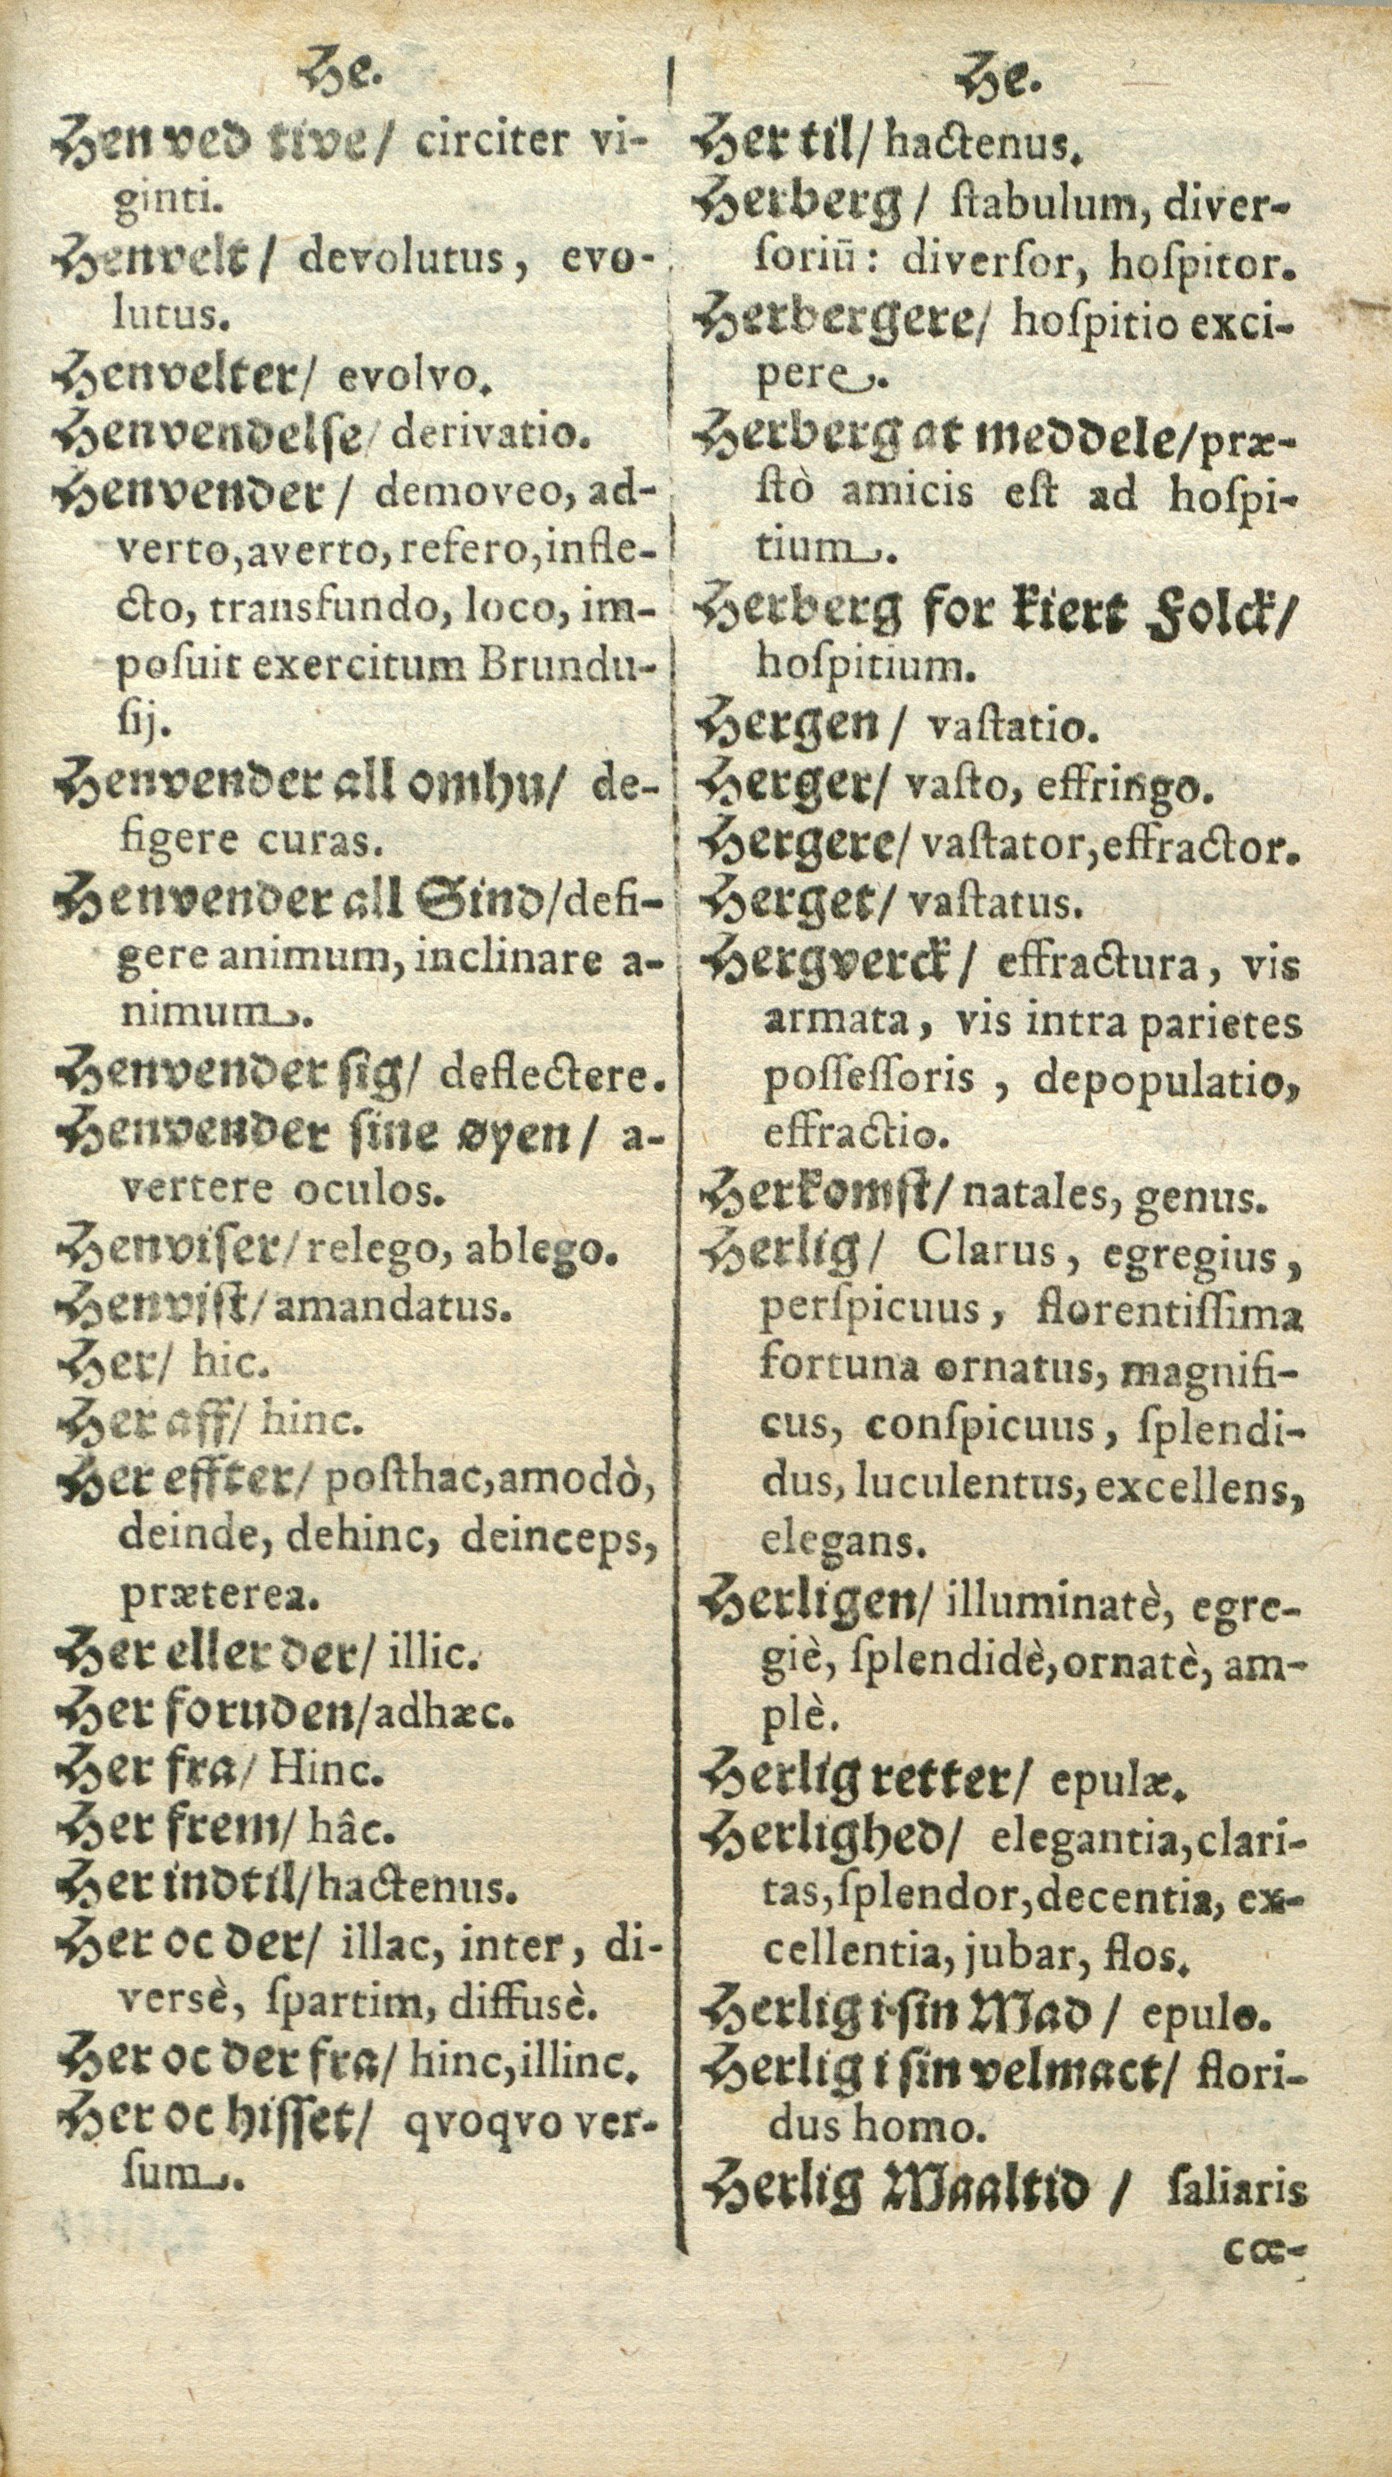 He.
Hen ved tive/ circiter vi-
ginti.
Henvelt/ devolutus, evo-
lutus.
Henvelter/ evolvo.
Henvendelſe/ derivatio.
Henvender/ demoveo, ad-
verto, averto, refero, infle-
cto, transfundo, loco, im-
poſuit exercitum Brundu-
ſij.
Henvender all omhu/ de-
figere curas.
Henvender all Sind/ defi-
gere animum, inclinare a-
nimum.
Henvender ſig/ deflectere.
Henvender ſine øyen/ a-
vertere oculos.
Henviſer/ relego, ablego.
Henviſt/ amandatus.
Her/ hic.
Her aff/ hinc.
Her effter/ poſthac, amodò,
deinde, dehinc, deinceps,
præterea.
Her eller der/ illic.
Her foruden/ adhæc.
Her fra/ Hinc.
Her frem/ hâc.
Her indtil/ hactenus.
Her oc der/ illac, inter, di-
versè, ſpartim, diffusè.
Her oc der fra/ hinc, illinc.
Her oc hiſſet/ qvoqvo ver-
ſum.
He.
Her til/ hactenus.
Herberg/ ſtabulum, diver-
ſoriū: diverſor, hoſpitor.
Herbergere/ hoſpitio exci-
pere.
Herberg at meddele/ præ-
ſtò amicis eſt ad hoſpi-
tium.
Herberg for kiert Folck/
hoſpitium.
Hergen/ vaſtatio.
Herger/ vaſto, effringo.
Hergere/ vaſtator, effractor.
Herget/ vaſtatus.
Hergverck/ effractura, vis
armata, vis intra parietes
poſſeſſoris, depopulatio,
effractio.
Herkomſt/ natales, genus.
Herlig/ Clarus, egregius,
perſpicuus, florentiſſima
fortuna ornatus, magnifi-
cus, conſpicuus, ſplendi-
dus, luculentus, excellens,
elegans.
Herligen/ illuminatè, egre-
giè, ſplendidè, ornatè, am-
plè.
Herlig retter/ epulæ.
Herlighed/ elegantia, clari-
tas, ſplendor, decentia, ex-
cellentia, jubar, flos.
Herlig i ſin Mad/ epulo.
Herlig i ſin velmact/ flori-
dus homo.
Herlig Maaltid/ ſaliaris
cœ-